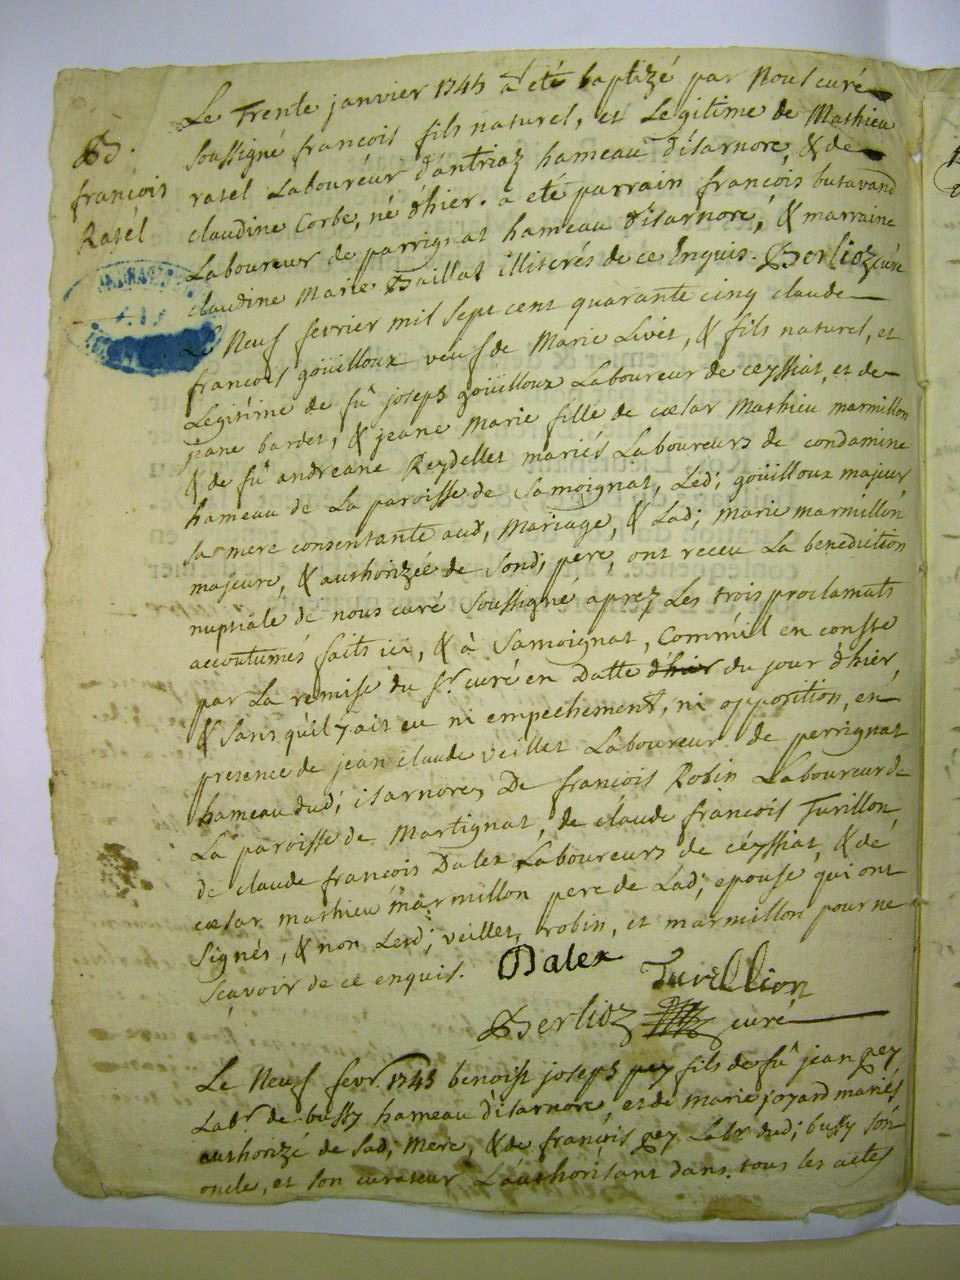 Bd.
françois
Ratel
Le Trente janvier 1745 a été baptizé par Nous curé
soussigné francois fils naturel, et Legitime de Mathieu
ratel Laboureur d'antriaz hameau d'isarnore, & de
claudine Corbe, né d'hier. a eté parrain françois butavand
Laboureur de parrignat hameau d'isarnore, & marraine
claudine Marie Baillat illiterés de ce Enquis. Berlioz curé
Le Neuf fevrier mil sept cent quarante cinq claude
francois goüilloux veuf de Marie Livet, & fils naturel, et
Legitime de fû joseph goüilloux Laboureur de ceyssiat, et de
jeane bardet, & jeane Marie fille de cæsar Mathieu marmillon
& de fû andreane Reydellet mariés Laboureurs de condamine
hameau de La paroisse de Samoignat, Led; goüilloux majeur
sa mere consentante aud, Mariage, & Lad; Marie marmillon
majeure, & authorizée de Sond; pere, ont receu La benediction
nuptiale de nous curé Soussigné aprez Les trois proclamats
accoutumés faits ici, & à Samoignat, Comm'il en conste
par La remise du Sr. curé en Datte d'hier du jour d'hier,
& Sans qu'il y ait eu ni empechement, ni opposition, en
presence de jean claude veillet Laboureur de perrignat
hameau dud; isarnore, De françois Robin Laboureur de
La paroisse de Martignat, de claude françois Turillon,
de claude francois Dalex Laboureurs de céyssiat, & de
cæsar mathieu marmillon pere de Lad; epouse qui ont
Signés, & non Lesd; veillet, robin, et marmillon pour ne
Sçavoir de ce enquis. Dalex
Turillion
Berlioz curé
Le Neuf fevr. 1745 benoist joseph pey fils de fû jean pey
Labr. de bussy hameau d'isarnore, et de marie joyard mariés
authorizé de Sad; Mere, & de françois pey Labr dud; bussy Son
oncle, et Son curateur L'authorisant dans tous les actes